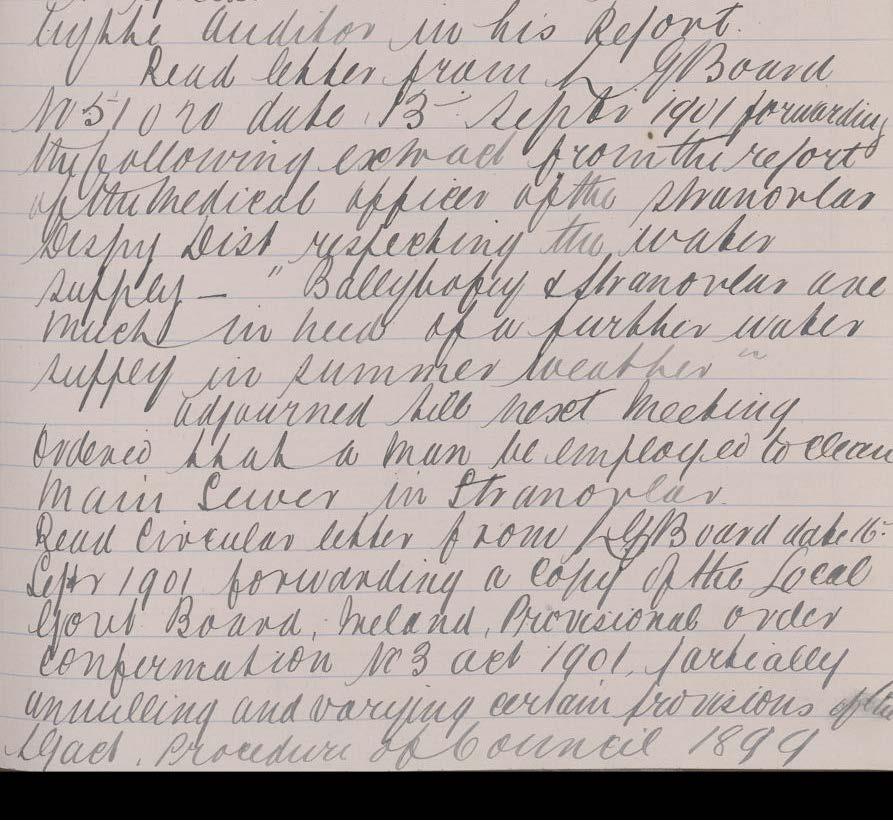 by the Auditor in his Report.
Read letter from L G Board
No 51020 date 13 Septbr 1901 forwarding
the following extract from the report
of the Medical officer of the Stranorlar
Dispy Dist respecting the water
supply — " Ballybofey & Stranorlar are
much in need of a further water
supply in summer weather "
adjourned till next Meeting
Ordered that a man be employed to clean
Main Sewer in Stranorlar
Read Circular letter from LGBoard date 16:
Septr 1901 forwarding a copy of the Local
Govt Board, Ireland, Provisional order
confirmation No 3 act 1901, partially
annulling and varying certain provisions of the
LGact, Procedure of Council 1899